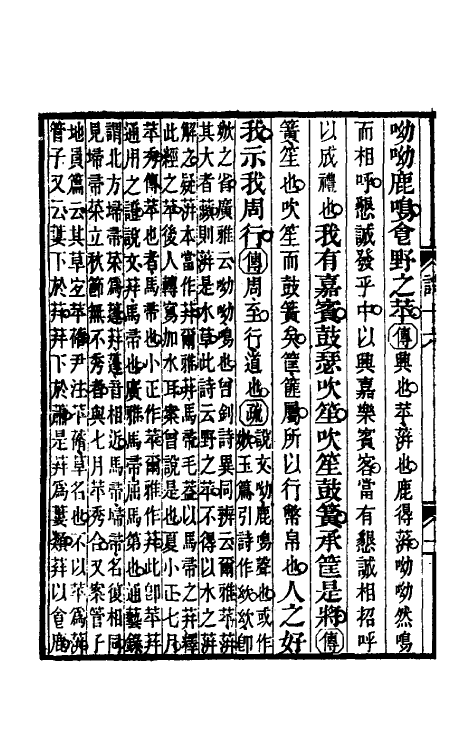 呦呦鹿鳴食野之苹傳興也苹蓱也鹿得蓱呦呦然鳴
而相呼懇誠發乎中以興嘉樂賓客當有懇誠相招呼
以成禮也我有嘉賓鼓瑟吹笙吹笙鼓簧承筐是將傳
簧笙也吹笙而鼓簧矣筐篚屬所以行幣帛也人之好
我示我周行傳周至行道也疏說文呦鹿鳴聲也或作
㰶玉篇引詩作卽
㰶之省廣雅云呦呦鳴也曾釗詩異同辨云爾雅苹蓱
其大者蘋則蓱是水草此詩云野之苹不得以水之蓱
解之疑蓱本當作荓爾雅荓馬帚毛蓋以馬帚之荓釋
此經之苹後人轉寫加水耳案曾說是也夏小正七月
苹秀傳苹也者馬帚也小正作苹爾雅作荓此卽苹荓
通用之證說文荓馬帚也廣雅馬帚屈馬第也通藝錄
謂北方埽帚菜爲蓬荓蓬音相近馬帚埽帚名復相同
見埽帚菜立秋節無不秀者與七月苹秀合又案管子
地員篇云其草宜苹蓨尹注苹蓨草名也不以苹爲蓱
管子又云蔞下於荓荓下於蕭是荓爲蔞類荓以食鹿
詩十六